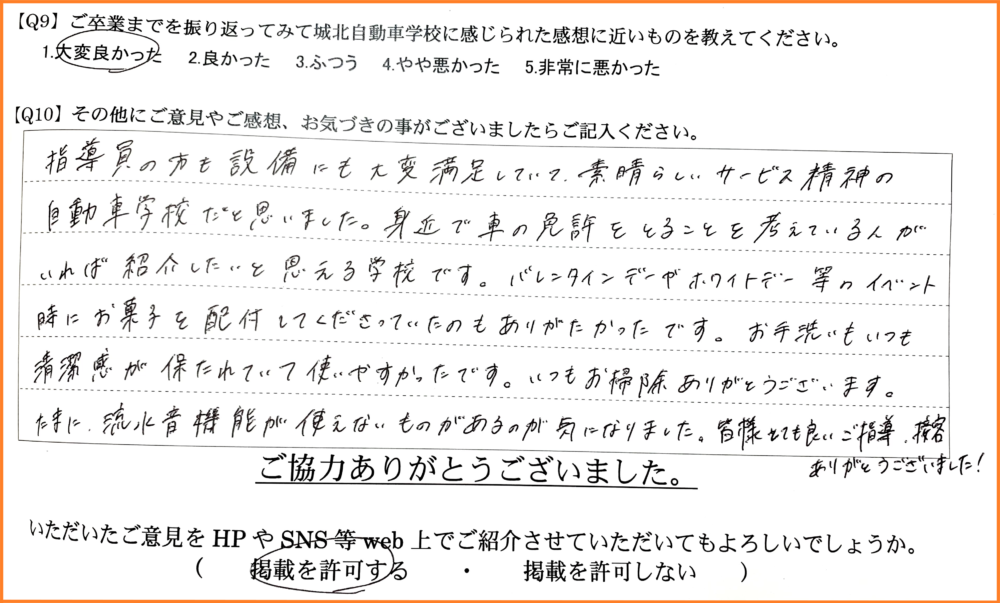 【Q9】ご卒業までを振り返ってみて城北自動車学校に感じられた感想に近いものを教えてください。
1.大変良かった 2.良かった 3.ふつう 4.やや悪かった 5.非常に悪かった
【Q10】その他にご意見やご感想、お気づきの事がございましたらご記入ください。
指導員の方も設備にも大変満足していて、素晴らしいサービス精神の
自動車学校だと思いました。身近で車の免許をとることを考えている人が
いれば紹介したいと思える学校です。バレンタインデーやホワイトデー等のイベント
時にお菓子を配付してくださっていたのもありがたかったです。お手洗いもいつも
清潔感が保たれていて使いやすかったです。いつもお掃除ありがとうございます。
たまに、流水音機能が使えないものがあるのが気になりました。皆様とても良いご指導、接客
ありがとうございました!
ご協力ありがとうございました。
いただいたご意見をHPやSNS等web上でご紹介させていただいてもよろしいでしょうか。
( 掲載を許可する ・ 掲載を許可しない )